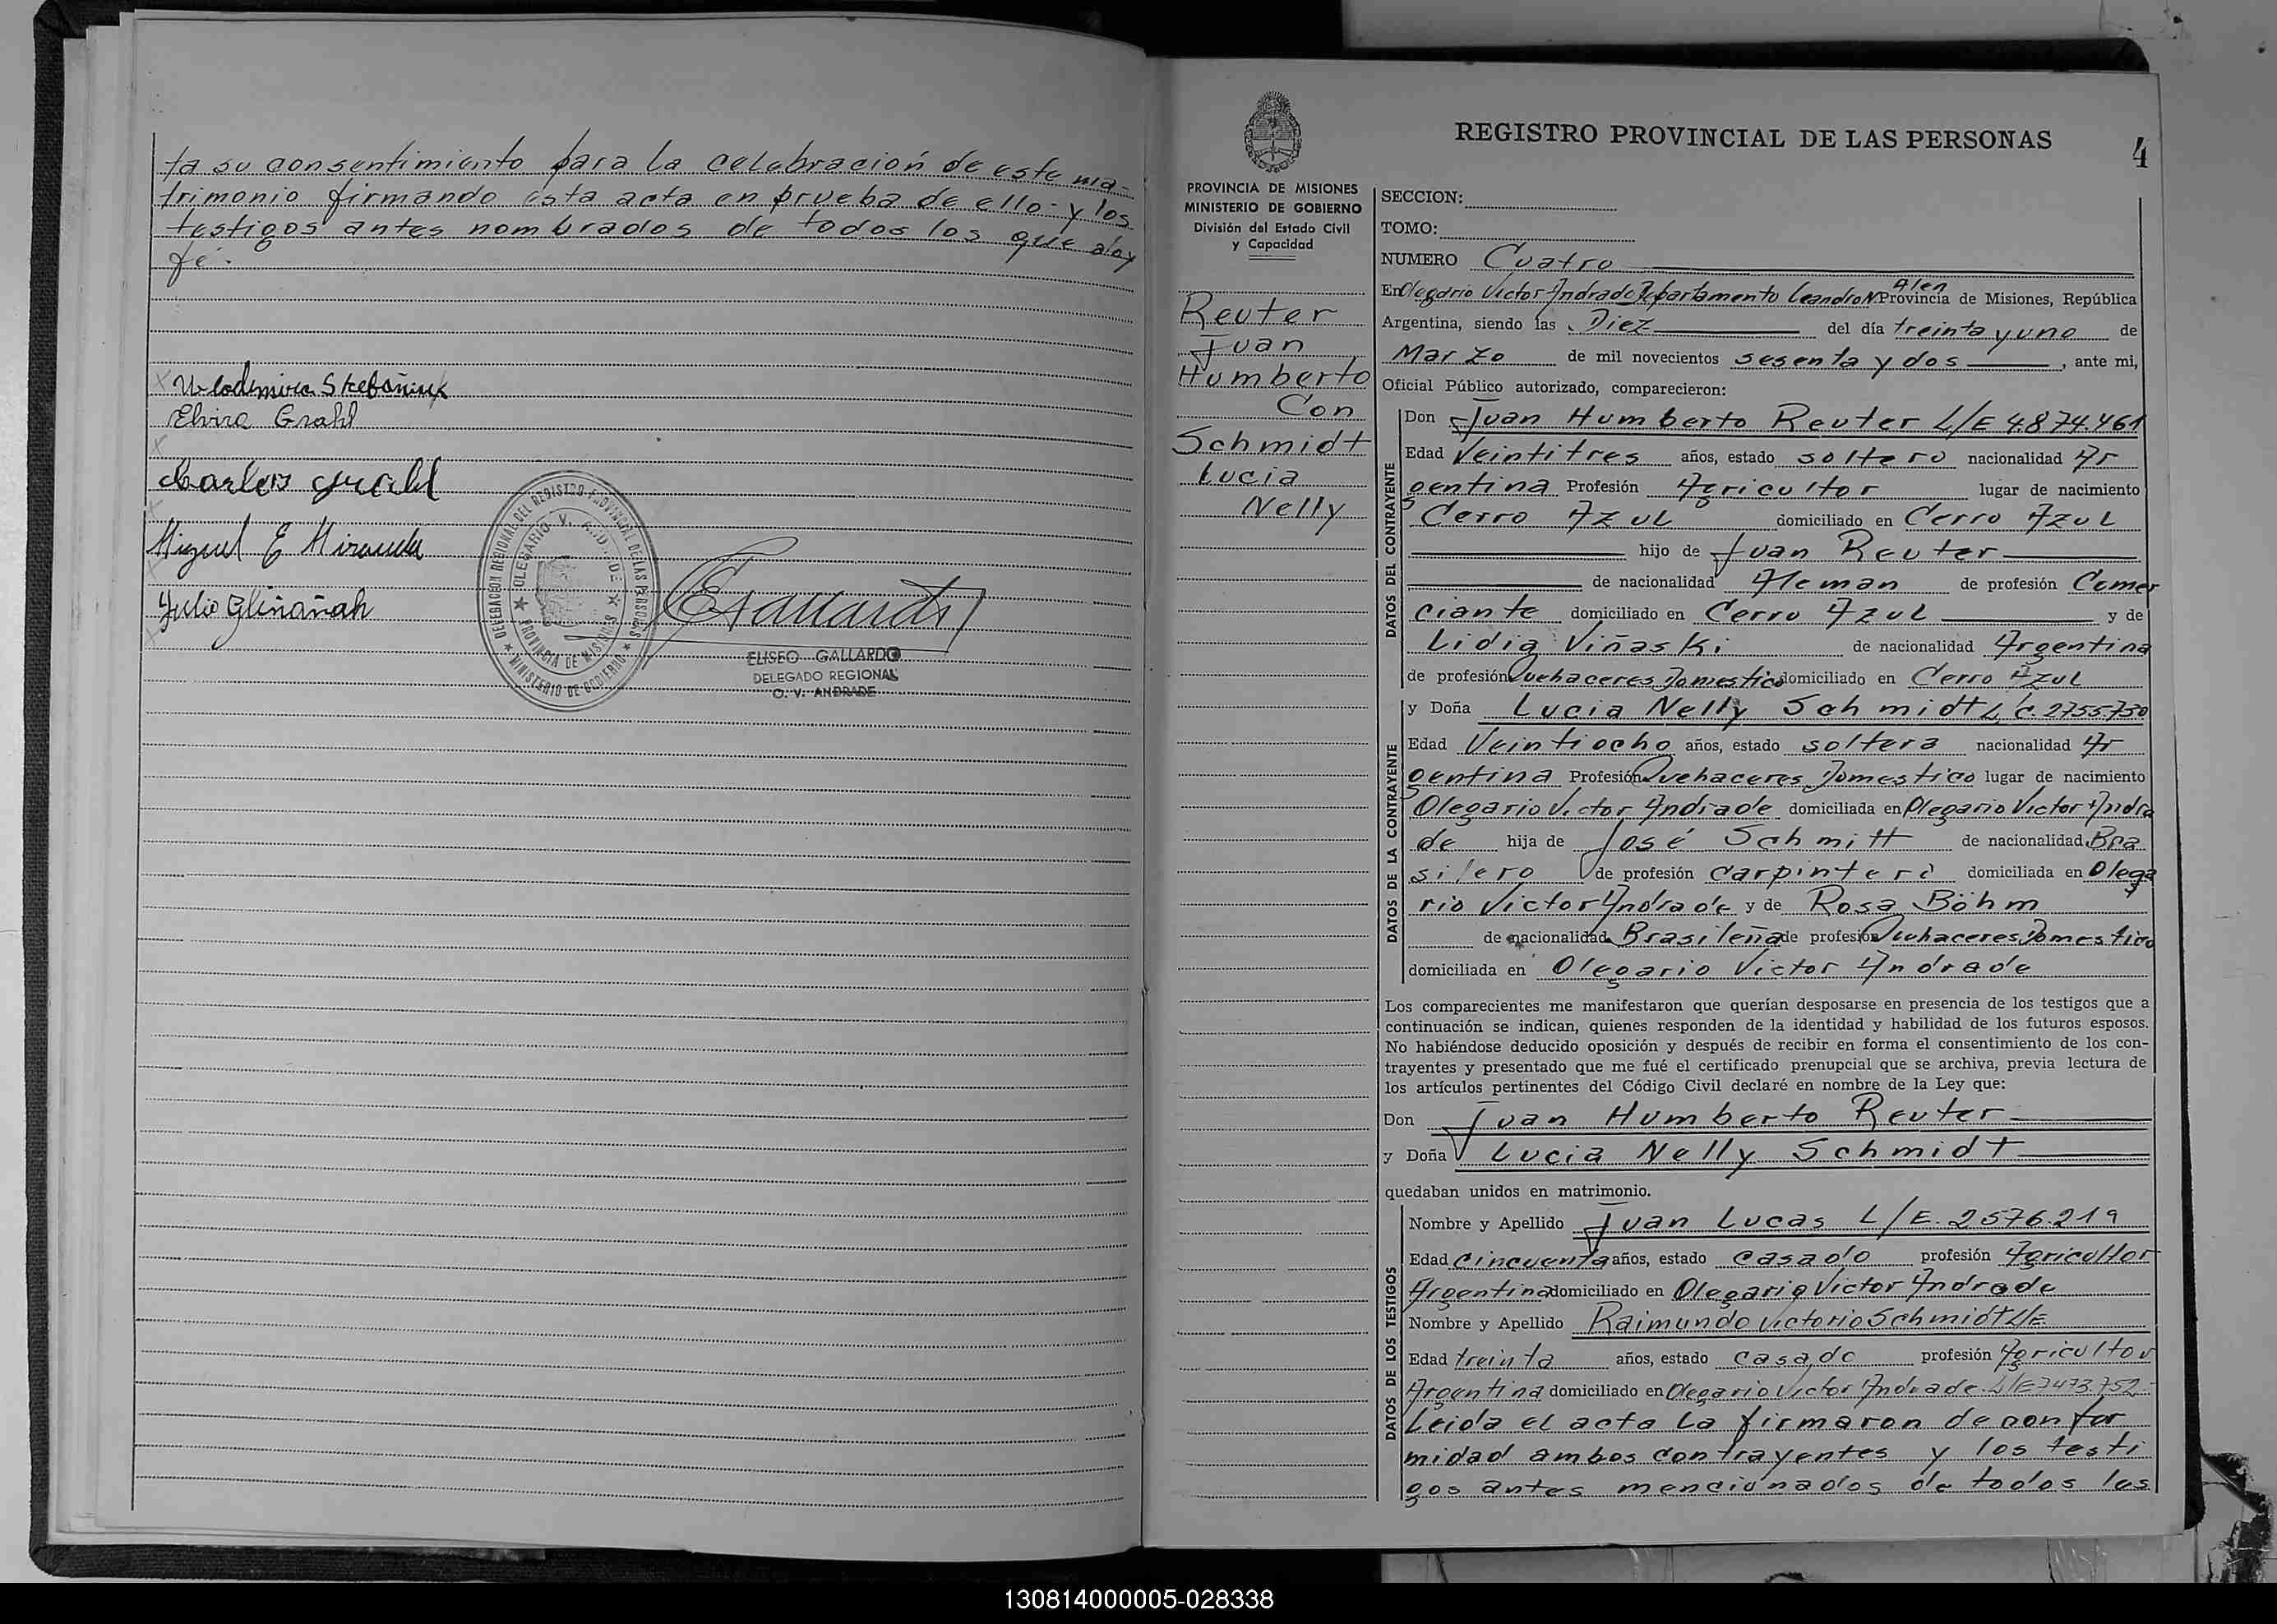 ta su consentimiento para la celebración de este ma-
trimonio firmando esta acta en prueba de ello- y los
testigos antes nombrados de todos los que doy
fé.
Elvira Grahl
Carlos Grahl
Miguel E Miranda
DELEGACION REGIONAL DEL REGISTRO PROVINCIAL DE LAS PERSONAS
★ MINISTERIO DE GOBIERNO ★
★ OLEGARIO V. ANDRADE ★
PROVINCIA DE MISIONES
ELISEO GALLARDO
DELEGADO REGIONAL
O. V. ANDRADE
REGISTRO PROVINCIAL DE LAS PERSONAS
4
PROVINCIA DE MISIONES
MINISTERIO DE GOBIERNO
División del Estado Civil
y Capacidad
Reuter
Juan
Humberto
Con
Schmidt
Lucia
Nelly
SECCION:
TOMO:
NUMERO Cuatro
En Olegario Victor Andrade Departamento Leandro N Alen Provincia de Misiones, República
Argentina, siendo las Diez del día treinta y uno de
Marzo de mil novecientos sesenta y dos, ante mi,
Oficial Público autorizado, comparecieron:
DATOS DEL CONTRAYENTE
Don Juan Humberto Reuter L/E 4.874.461
Edad Veintitres años, estado soltero nacionalidad Ar
gentina Profesión Agricultor lugar de nacimiento
Cerro Azul domiciliado en Cerro Azul
hijo de Juan Reuter
de nacionalidad Aleman de profesión Comer
ciante domiciliado en Cerro Azul y de
Lidia Viñaski de nacionalidad Argentina
de profesión Quehaceres Domestico domiciliado en Cerro Azul
DATOS DE LA CONTRAYENTE
y Doña Lucia Nelly Schmidt L/C. 2755.730
Edad Veintiocho años, estado soltera nacionalidad Ar
gentina Profesión Quehaceres Domestico lugar de nacimiento
Olegario Victor Andrade domiciliada en Olegario Victor Andra
de hija de José Schmitt de nacionalidad Bra
silero de profesión Carpintero domiciliada en Olega
rio Victor Andrade y de Rosa Böhm
de nacionalidad Brasileña de profesión Quehaceres Domestico
domiciliada en Olegario Victor Andrade
Los comparecientes me manifestaron que querían desposarse en presencia de los testigos que a
continuación se indican, quienes responden de la identidad y habilidad de los futuros esposos.
No habiéndose deducido oposición y después de recibir en forma el consentimiento de los con-
trayentes y presentado que me fué el certificado prenupcial que se archiva, previa lectura de
los artículos pertinentes del Código Civil declaré en nombre de la Ley que:
Don Juan Humberto Reuter
y Doña Lucia Nelly Schmidt
quedaban unidos en matrimonio.
DATOS DE LOS TESTIGOS
Nombre y Apellido Juan Lucas L/E. 2576.219
Edad Cincuenta años, estado casado profesión Agricultor
Argentina domiciliado en Olegario Victor Andrade
Nombre y Apellido Raimundo Victorio Schmidt L/E
Edad treinta años, estado casado profesión Agricultor
Argentina domiciliado en Olegario Victor Andrade. L/E 7473.752
Leida el acta la firmaron de confor
midad ambos contrayentes y los testi
gos antes mencionados de todos los
130814000005-028338